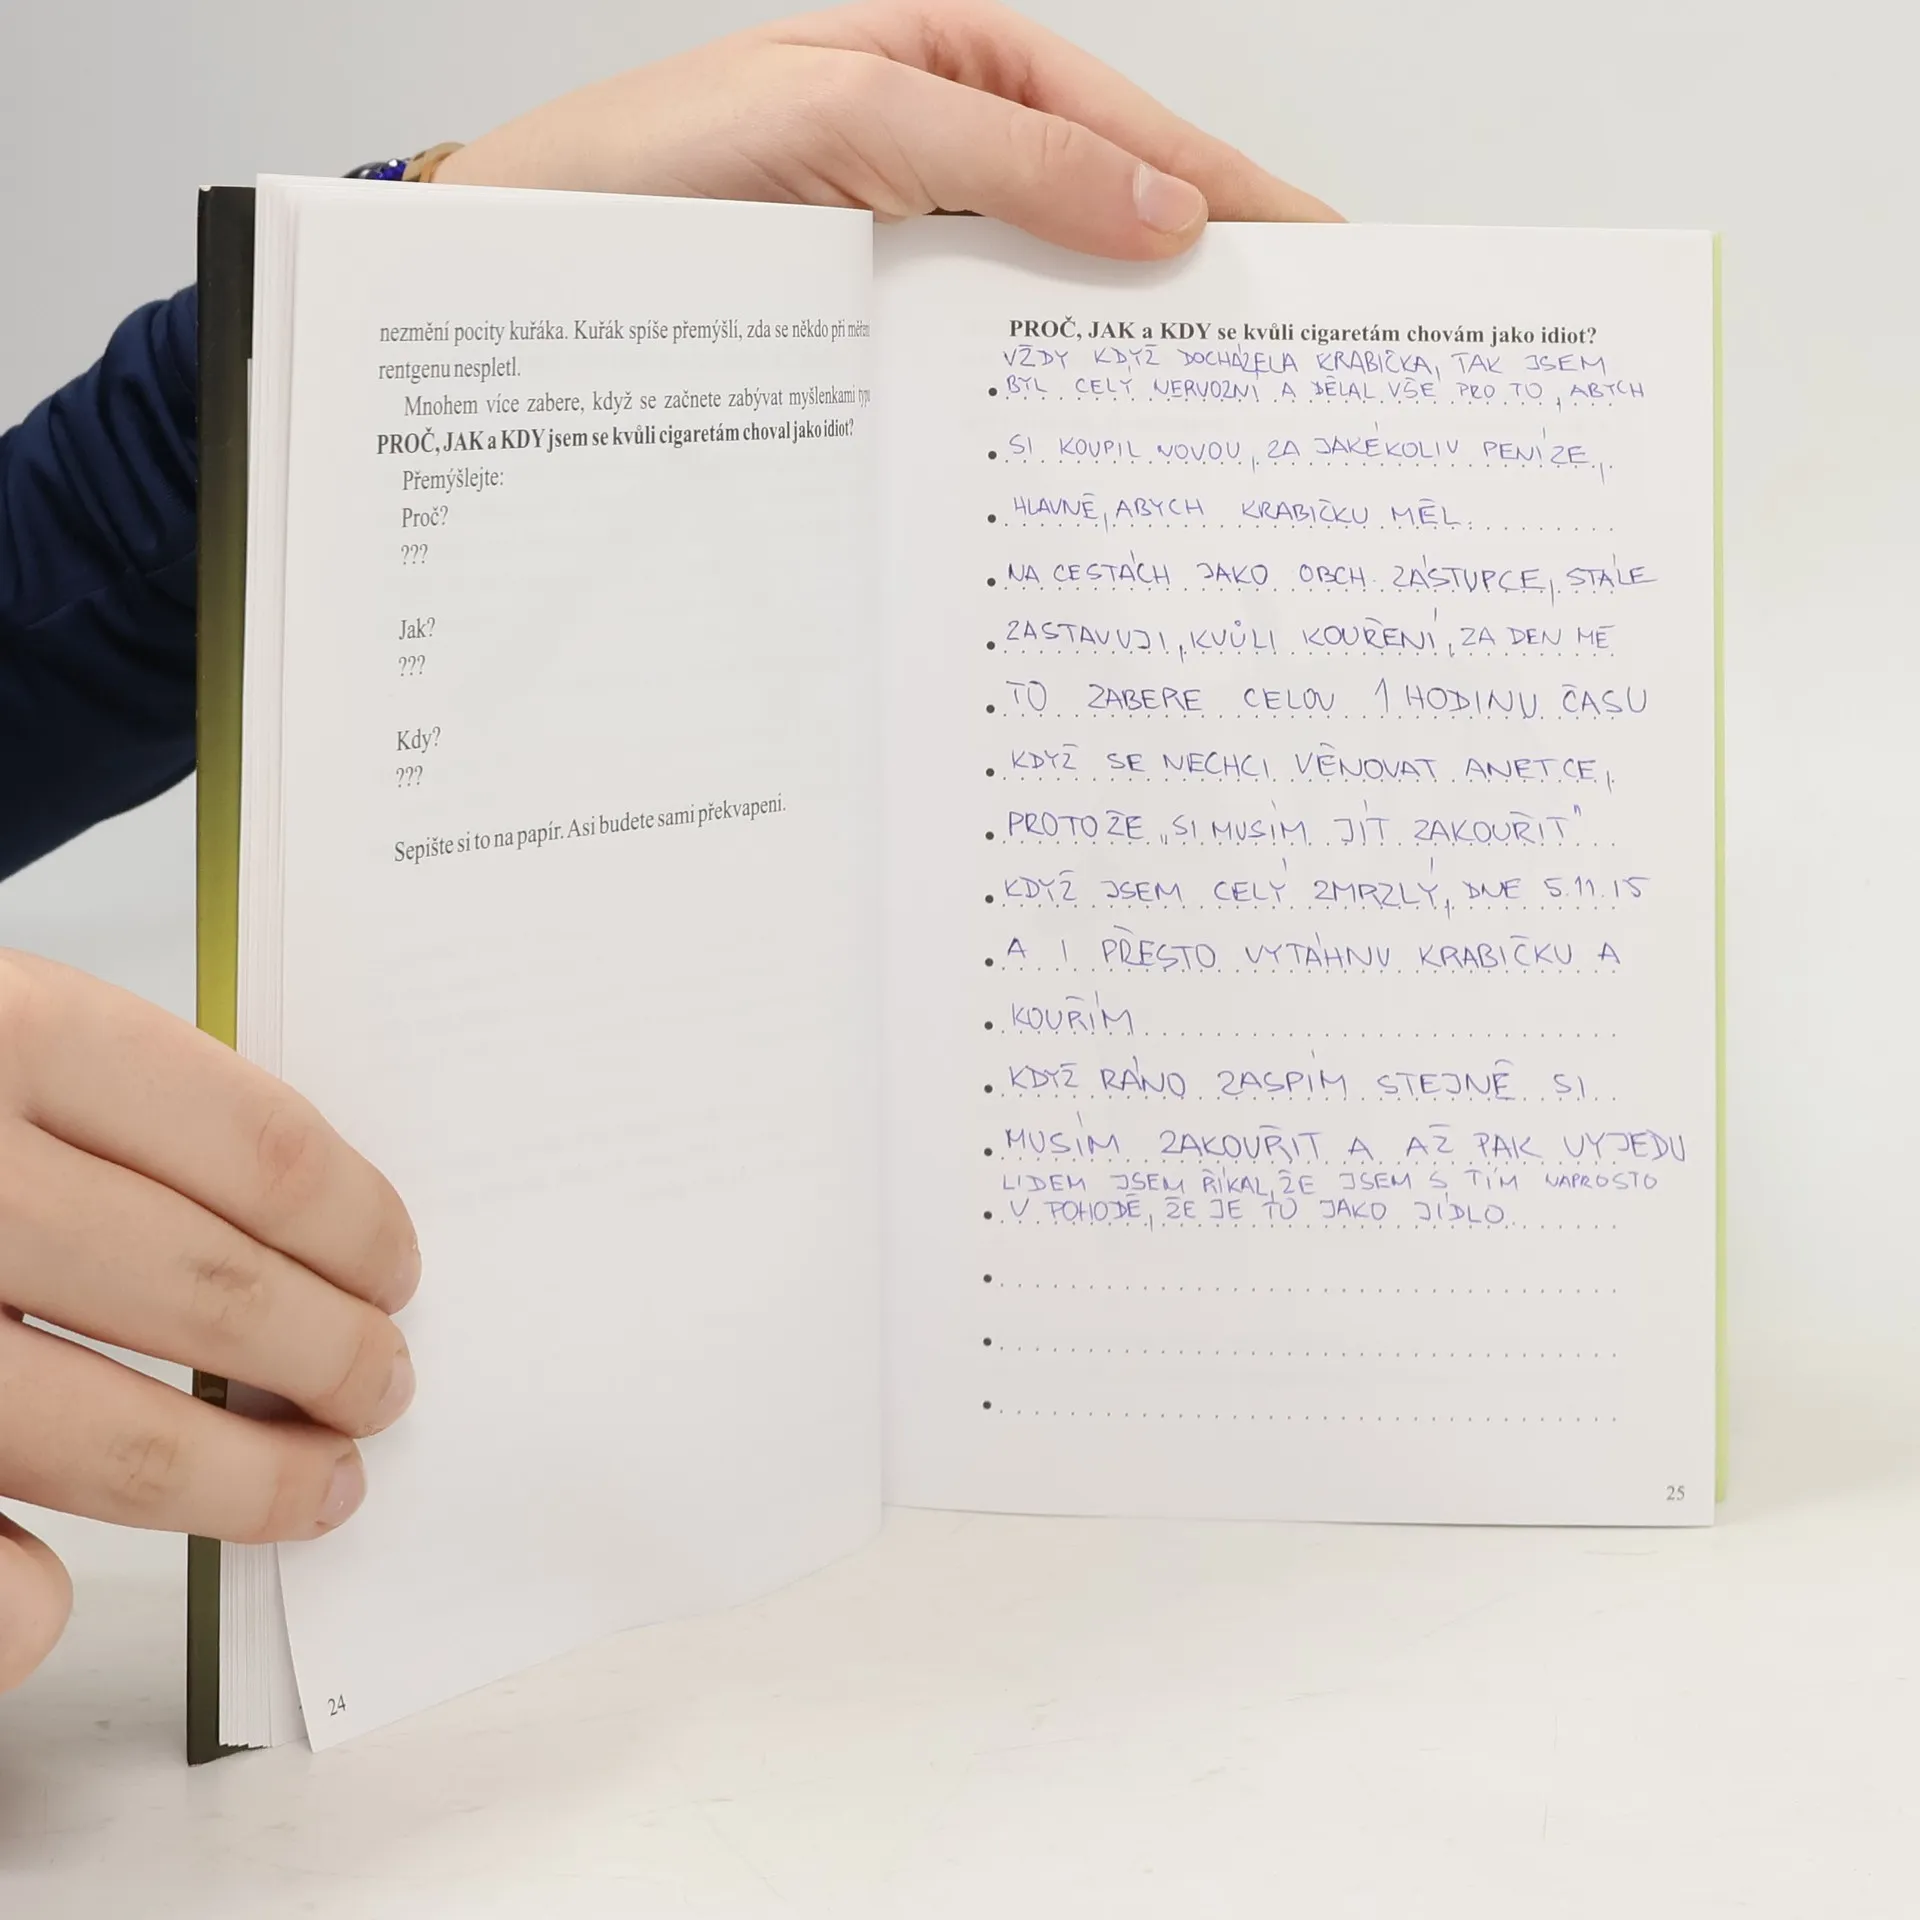 nezmění pocity kuřáka. Kuřák spíše přemýšlí, zda se někdo při
rentgenu nespletl.
Mnohem více zabere, když se začnete zabývat myšlenkami typu
PROČ, JAK a KDY jsem se kvůli cigaretám choval jako idiot?
Přemýšlejte:
Proč?
???
Jak?
???
Kdy?
???
Sepište si to na papír. Asi budete sami překvapeni.
24
PROČ, JAK a KDY se kvůli cigaretám chovám jako idiot?
VŽDY KDYŽ DOCHÁZELA KRABIČKA, TAK JSEM
• BYL CELÝ NERVOZNÍ A DĚLAL VŠE PRO TO, ABYCH
• SI KOUPIL NOVOU, ZA JAKÉKOLIV PENÍZE,
• HLAVNĚ, ABYCH KRABIČKU MĚL.
• NA CESTÁCH JAKO OBCH. ZÁSTUPCE, STÁLE
• ZASTAVUJI, KVŮLI KOUŘENÍ, ZA DEN MĚ
• TO ZABERE CELOU 1 HODINU ČASU
• KDYŽ SE NECHCI VĚNOVAT ANETCE,
• PROTOŽE „SI MUSÍM JÍT ZAKOUŘIT"
• KDYŽ JSEM CELÝ ZMRZLÝ, DNE 5.11.15
• A I PŘESTO VYTÁHNU KRABIČKU A
• KOUŘÍM
• KDYŽ RÁNO ZASPÍM STEJNĚ SI
• MUSÍM ZAKOUŘIT A AŽ PAK VYJEDU
LIDEM JSEM ŘÍKAL, ŽE JSEM S TÍM NAPROSTO
• V POHODĚ, ŽE JE TO JAKO JÍDLO
•
•
•
25